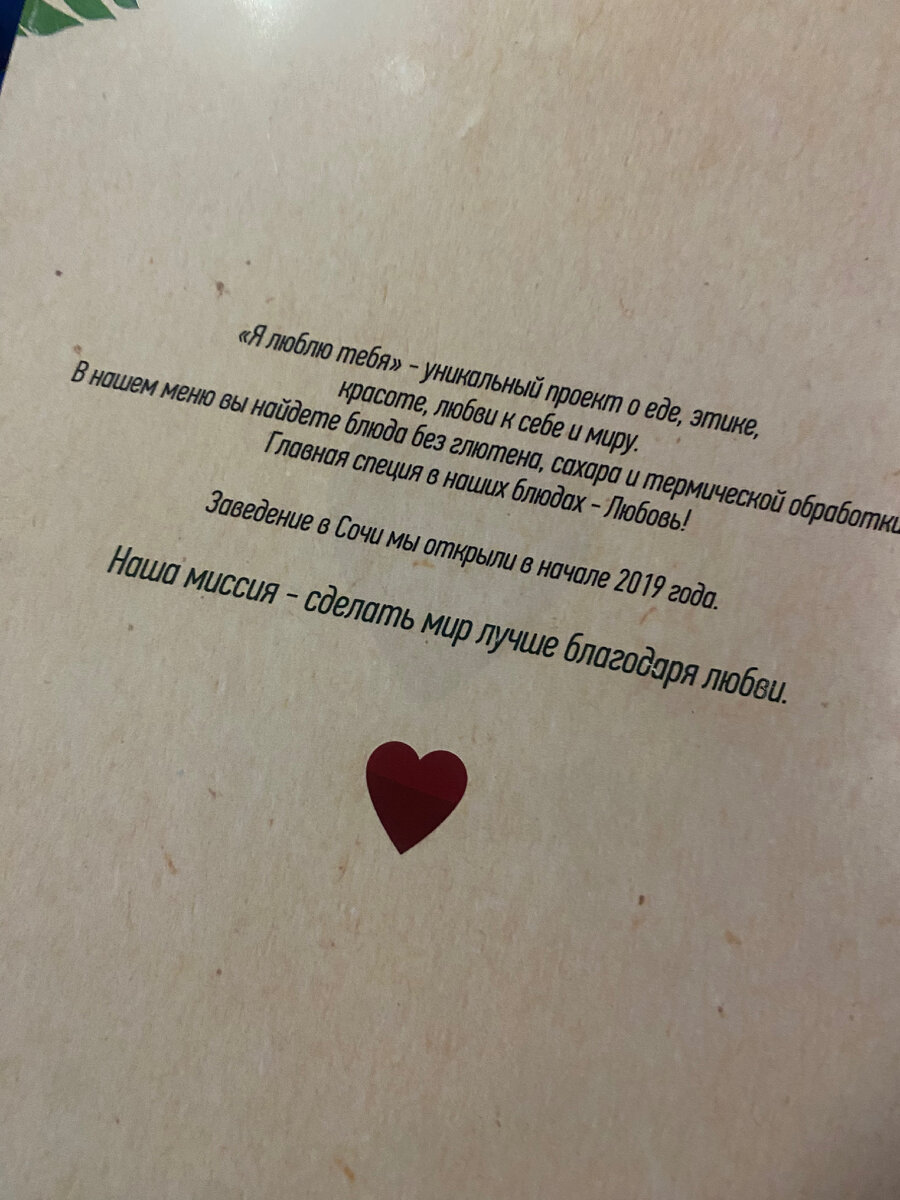 «Я люблю тебя» - уникальный проект о еде, этике,
красоте, любви к себе и миру.
В нашем меню вы найдете блюда без глютена, сахара и термической обработки
Главная специя в наших блюдах - Любовь!
Заведение в Сочи мы открыли в начале 2019 года.
Наша миссия - сделать мир лучше благодаря любви.